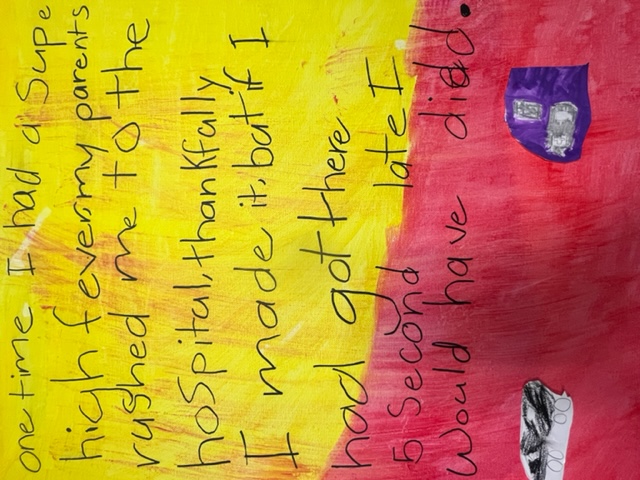 one time I had a Supe
high fever. my parents
rushed me to the
hospital, thankfully
I made it, but if I
had got there
5 second late I
Would have didd.